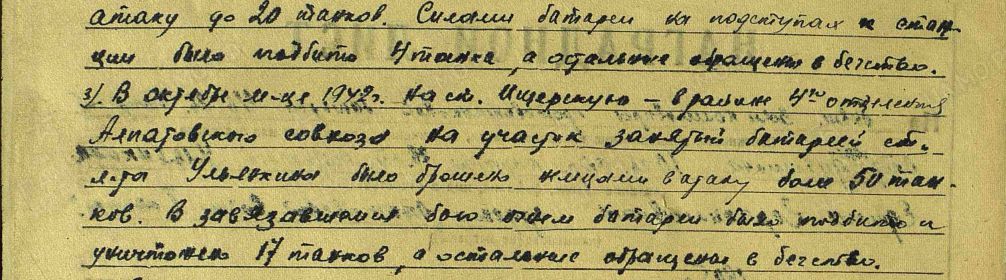 атаку до 20 танков. Силами батареи на подступах к стан-
ции было подбито 4 танка, а остальные обращены в бегство.
3/ В октябре м-це 1942 г. на ст. Ищерскую – в районе 4го отделения
Алпатовского совхоза на участок занятый батареей ст.
л-та Ульянкина было брошено немцами в атаку более 50 тан-
ков. В завязавшемся бою огнем батареи было подбито и
уничтожено 17 танков, а остальные обращены в бегство.